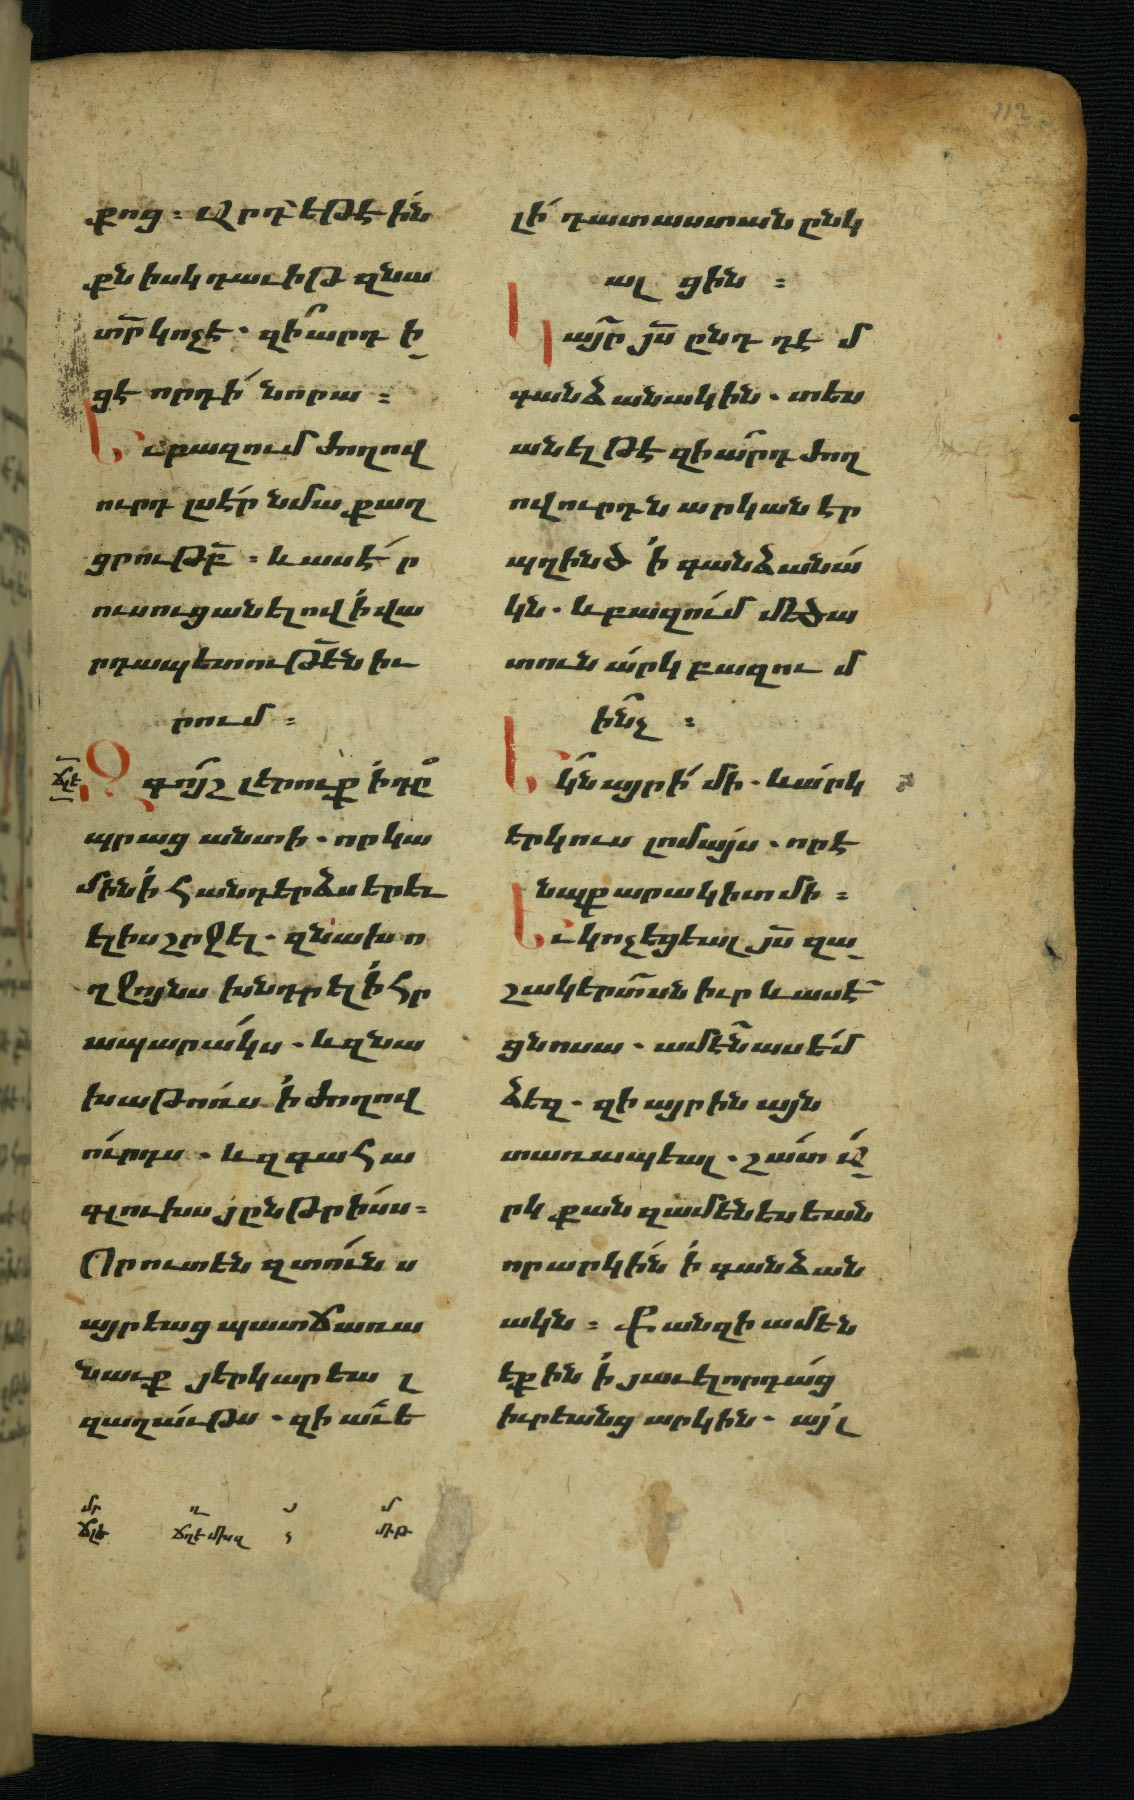 քոց ։ Արդ՝ եթէ ին
քն իսկ դաւիթ զնա
տր կոչէ · զիարդ ի
ցէ որդի նորա ։
Եւ բազում ժողով
ուրդ լսէր նմա քաղ
ցրութբ ։ և ասէ ր
ուսուցանելով ի վա
րդապետութեն իւ
րում ։
ճլե
Զգոյշ լերուք ի դը
պրաց անտի · որ կա
մին ի հանդերձս երեւ
ելիս շրջել · զնախ ո
ղջոյնս խնդրել ի հր
ապարակս · և զնա
խաթոռս ի ժողով
ուրդս · և զգահա
գլուխս յընթրիսս ։
Որ ուտէն զտուն ս
այրեաց պատճառա
նաւք յերկարեա լ
զաղաւթս · զի աւե
լի դատաստան ընկ
ալ ցին ։
Կայր յս ընդ դէ մ
գանձանակին · տես
անել թէ զիարդ ժող
ովուրդն արկանէր
պղինձ ի գանձանա
կն · և բազում մեծա
տուն արկ բազու մ
ինչ ։
Եկն այրի մի · և արկ
երկուս լումայս · որ է
նաքարակիտ մի ։
Եւ կոչեցեալ յս զա
շակերտսն իւր և ասէ
ցնոսա · ամէն ասեմ
ձեզ · զի այրին այն
տառապեալ · շատ ա
րկ քան զամենեսեան
որ արկին ի գանձան
ակն ։ Քանզի ամեն
եքին ի յաւելորդաց
իւրեանց արկին · այլ
մր
ճլե
մ